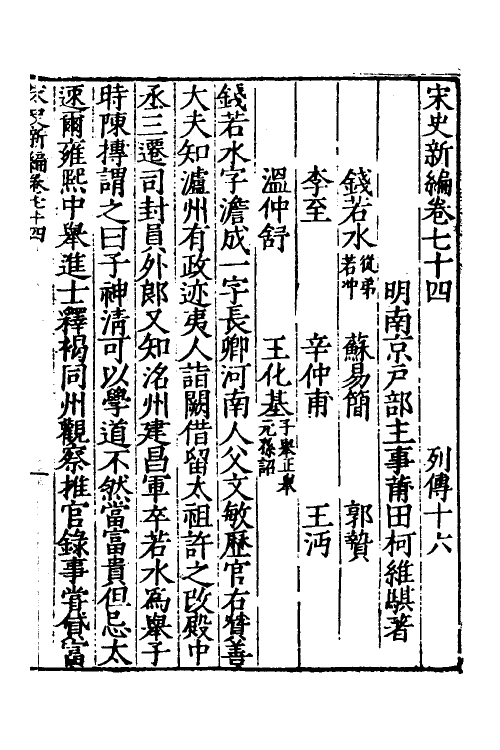 宋史新編卷七十四 列傳十六
明南京戸部主事莆田柯維騏著
錢若水從弟若冲 蘇易簡 郭贄
李至 辛仲甫 王沔
溫仲舒 王化基子舉正舉元孫詔
錢若水字澹成一字長卿河南人父文敏歷官右贊善
大夫知瀘州有政迹夷人詣闕借留太祖許之改殿中
丞三遷司封員外郎又知洺州建昌軍卒若水爲舉子
時陳摶謂之曰子神清可以學道不然當富貴但忌太
速爾雍熙中舉進士釋褐同州觀察推官錄事嘗貸富
宋史新編卷七十四 一